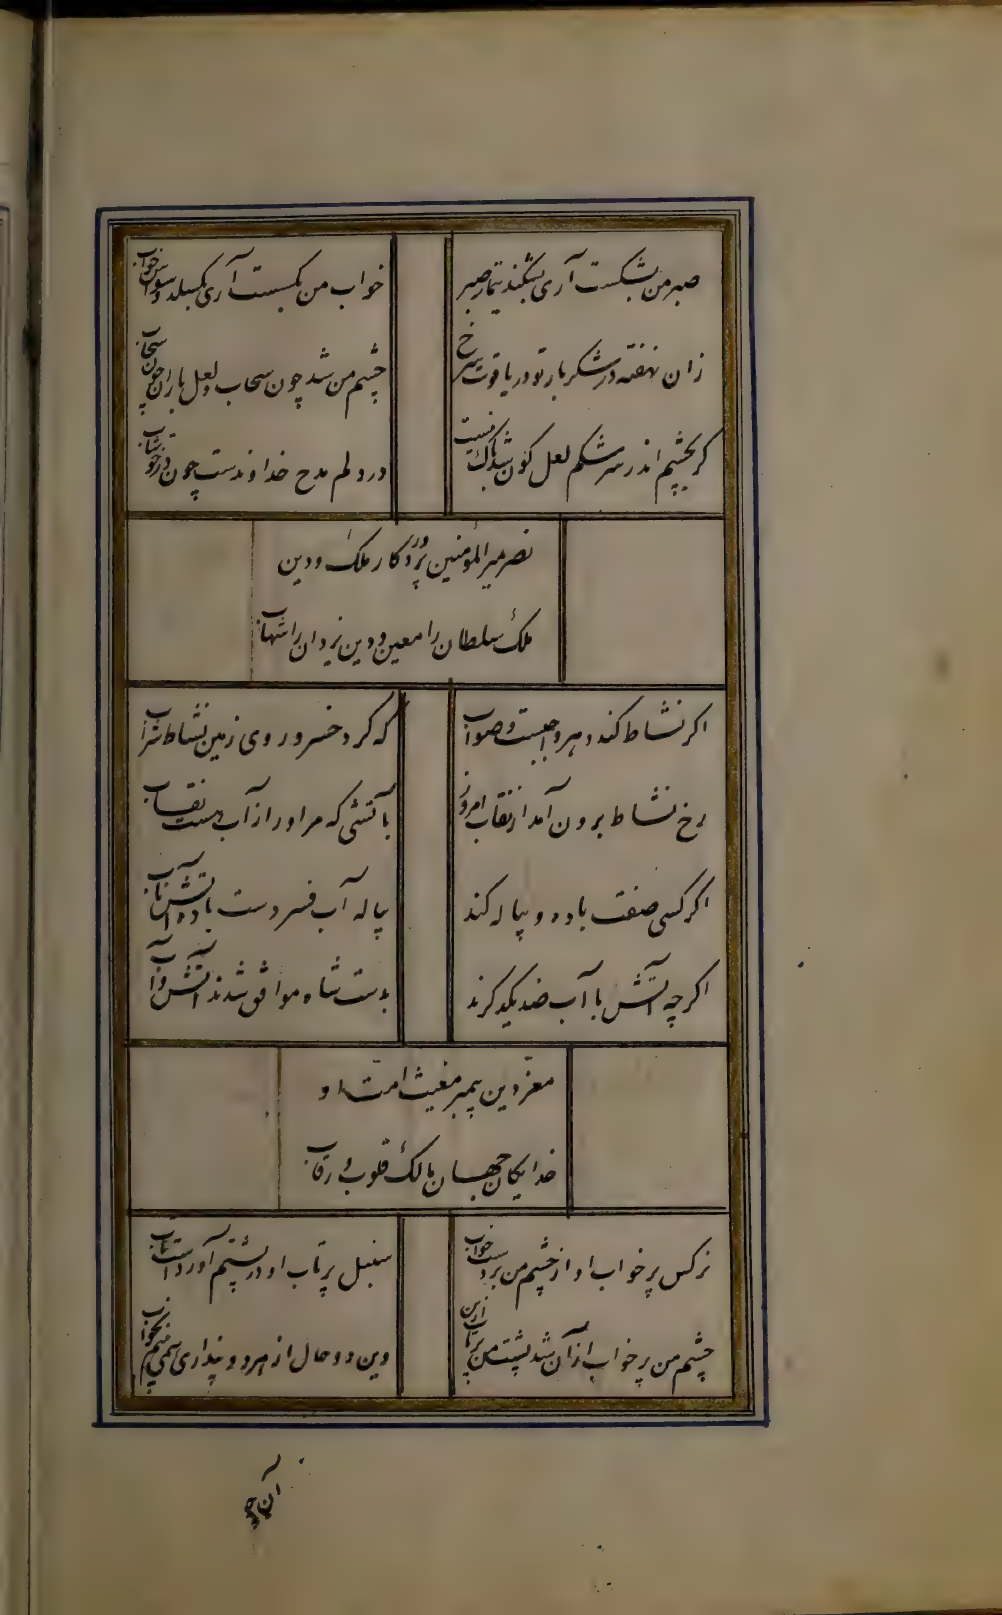 صبر من بشکست آری بشکند تیمار صبر
خواب من بکسست آری بکسلد وسواس خواب
زان نهفته در شکر بار تو در یاقوت سرخ
چشم من شد چون سحاب و لعل باران چون سحاب
کر بچشم اندر سرشکم لعل کون شد باک نیست
در دلم مدح خداوندست چون در خوشاب
نصر میر المؤمنین پروردکار ملک و دین
ملک سلطان را معین و دین یزدان را شهاب
اکر نشاط کند دهر واجبست و صواب
که کرد خسرو روی زمین نشاط شراب
رخ نشاط برون آمد از نقاب امروز
بآتشی که مر او را از آب هست نقاب
اکر کسی صفت باده و پیاله کند
پیاله آب فسردست باده آتش ناب
اکر چه آتش با آب ضد یکدکرند
بدست شاه موافق شدند آتش و آب
معز دین پیمبر مغیث امت او
خدایکان جهان مالک قلوب و رقاب
نرکس پر خواب او از چشم من بردست خواب
سنبل پر تاب او در پشتم آوردست تاب
چشم من پر خواب از آن شد پشت من پر تاب ازین
وین دو حال از هر دو پنداری همی بینم بخواب
آن چو